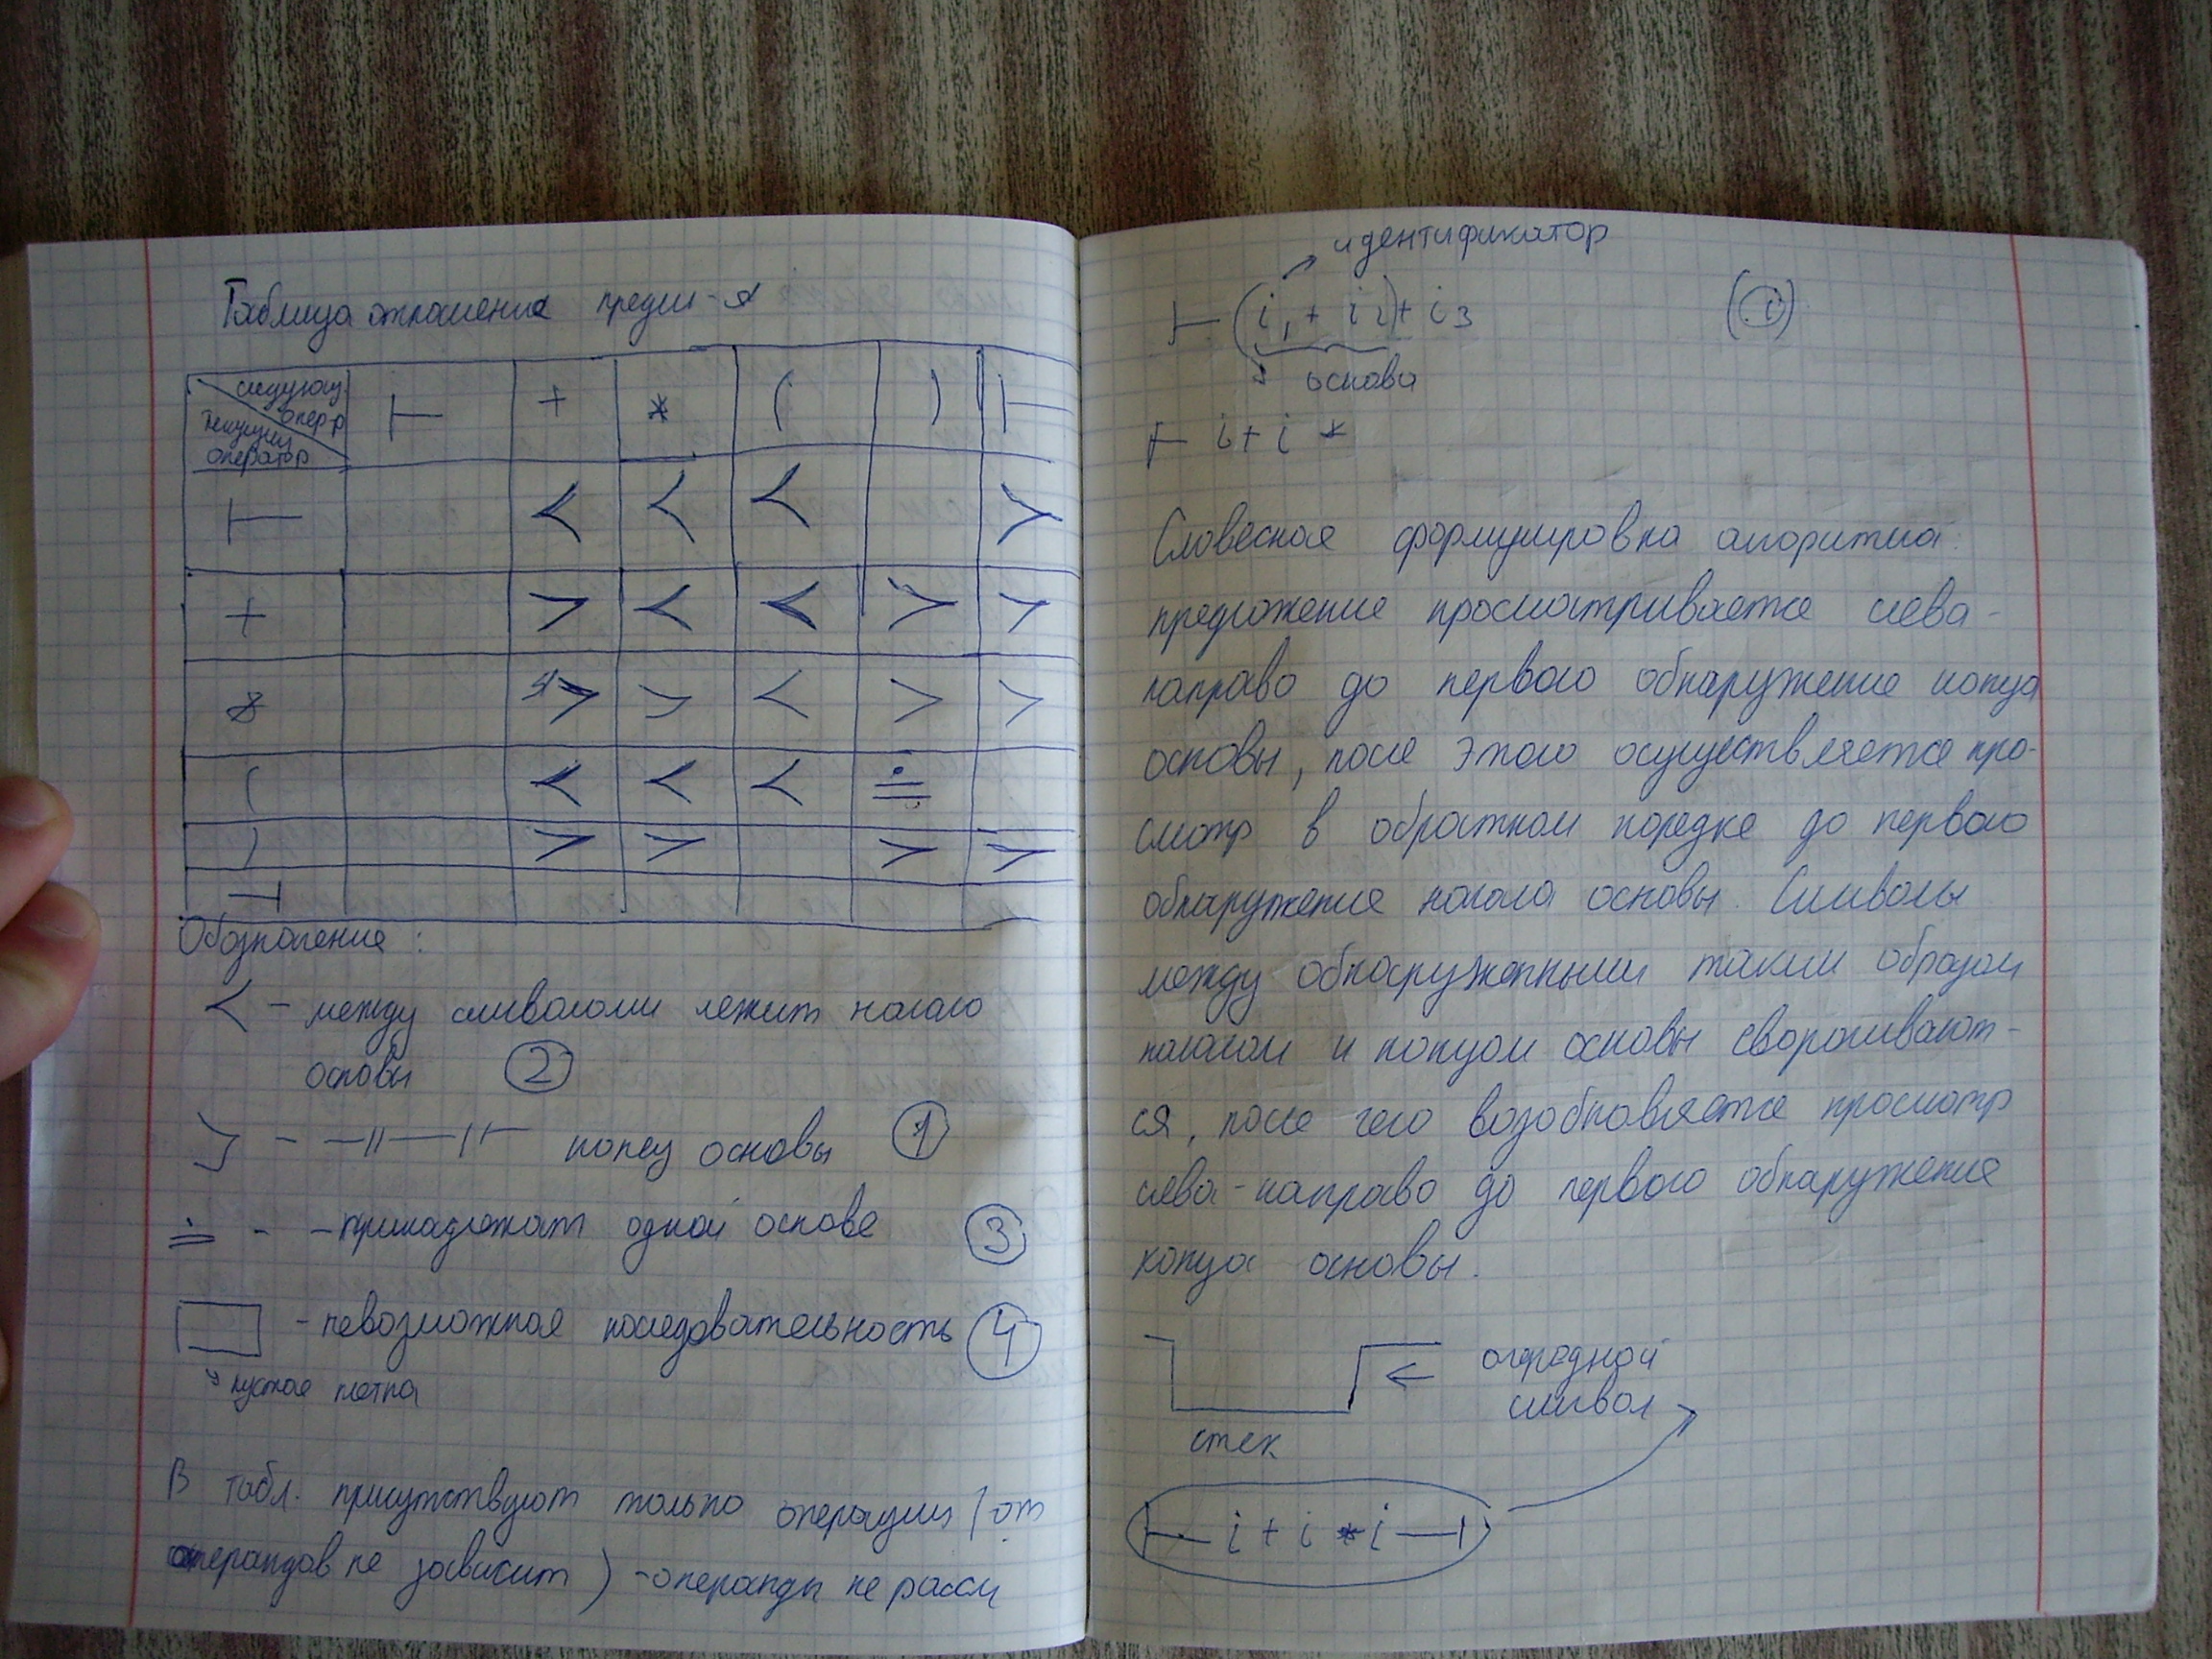 Таблица отношения предш-я
следующ. опер-р
текущий оператор
⊢ + * ( ) ⊢
⊢ ⋖ ⋖ ⋖ ⋗
+ ⋗ ⋖ ⋖ ⋗ ⋗
* ⋗ ⋗ ⋖ ⋗ ⋗
( ⋖ ⋖ ⋖ ≐
) ⋗ ⋗ ⋗ ⋗
⊣
Обозначение :
⋖ - между символами лежит начало
основы ②
⋗ - —||—||— конец основы ①
≐ - - принадлежат одной основе ③
□ - невозможная последовательность ④
пустая клетка
В табл. присутствуют только операции (от
операндов не зависит) - операнды не рассм
идентификатор
⊢ (i₁ + i₂) + i₃ (i)
основа
⊢ i + i *
Словесная формулировка алгоритма:
предложение просматривается слева-
направо до первого обнаружение конца
основы, после этого осуществляется про-
смотр в обратном порядке до первого
обнаружение начала основы. Символы
между обнаруженными таким образом
началом и концом основы сворачивают-
ся, после чего возобновляется просмотр
слева-направо до первого обнаружение
конца основы.
← очередной
символ
стек
⊢ i + i * i ⊣